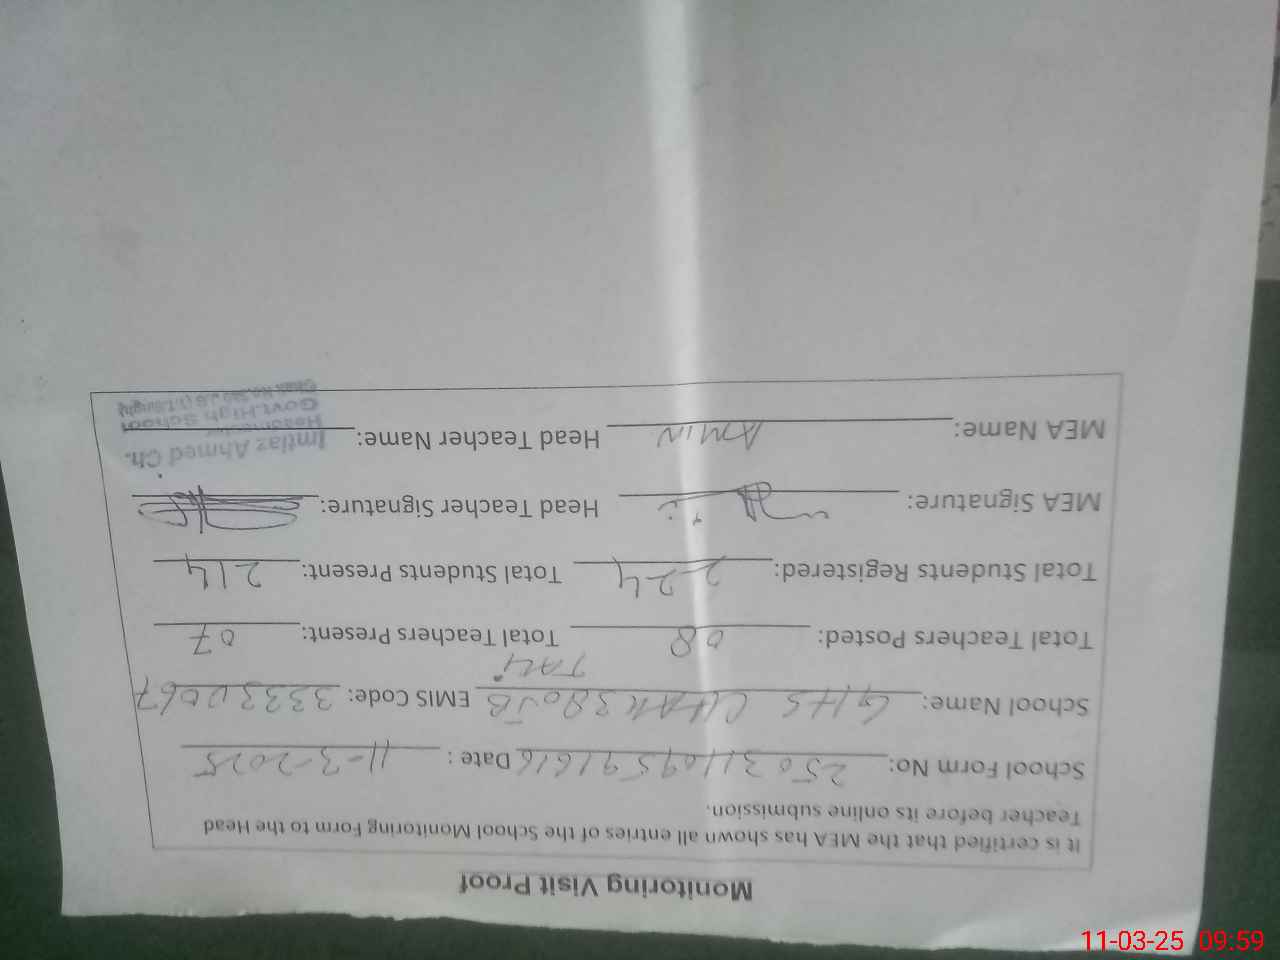 Monitoring Visit Proof
It is certified that the MEA has shown all entries of the School Monitoring Form to the Head
Teacher before its online submission.
School Form No: 25031109591616 Date : 11-3-2025
School Name: GHS CHAK 380 JB EMIS Code: 33330067
Total Teachers Posted: 08 Total Teachers Present: 07
Total Students Registered: 224 Total Students Present: 214
MEA Signature: Head Teacher Signature:
MEA Name: AMIN Head Teacher Name:
Imtiaz Ahmed Ch.
Headmaster
Govt. High School
11-03-25 09:59